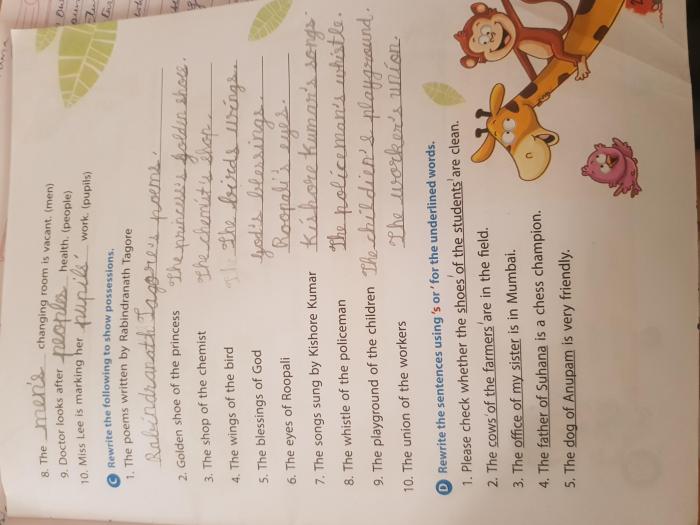 8. The men's changing room is vacant. (men)
9. Doctor looks after peoples health. (people)
10. Miss Lee is marking her pupils' work. (pupils)
C Rewrite the following to show possessions.
1. The poems written by Rabindranath Tagore
Rabindranath Tagore's poems.
2. Golden shoe of the princess The princess's golden shoe.
3. The shop of the chemist The chemist's shop.
4. The wings of the bird The birds wings.
5. The blessings of God God's blessings.
6. The eyes of Roopali Roopali's eyes.
7. The songs sung by Kishore Kumar Kishore Kumar's songs.
8. The whistle of the policeman The policeman's whistle.
9. The playground of the children The children's playground.
10. The union of the workers The worker's union.
D Rewrite the sentences using 's or ' for the underlined words.
1. Please check whether the shoes' of the students' are clean.
2. The cows' of the farmers' are in the field.
3. The office of my sister is in Mumbai.
4. The father of Suhana is a chess champion.
5. The dog of Anupam is very friendly.